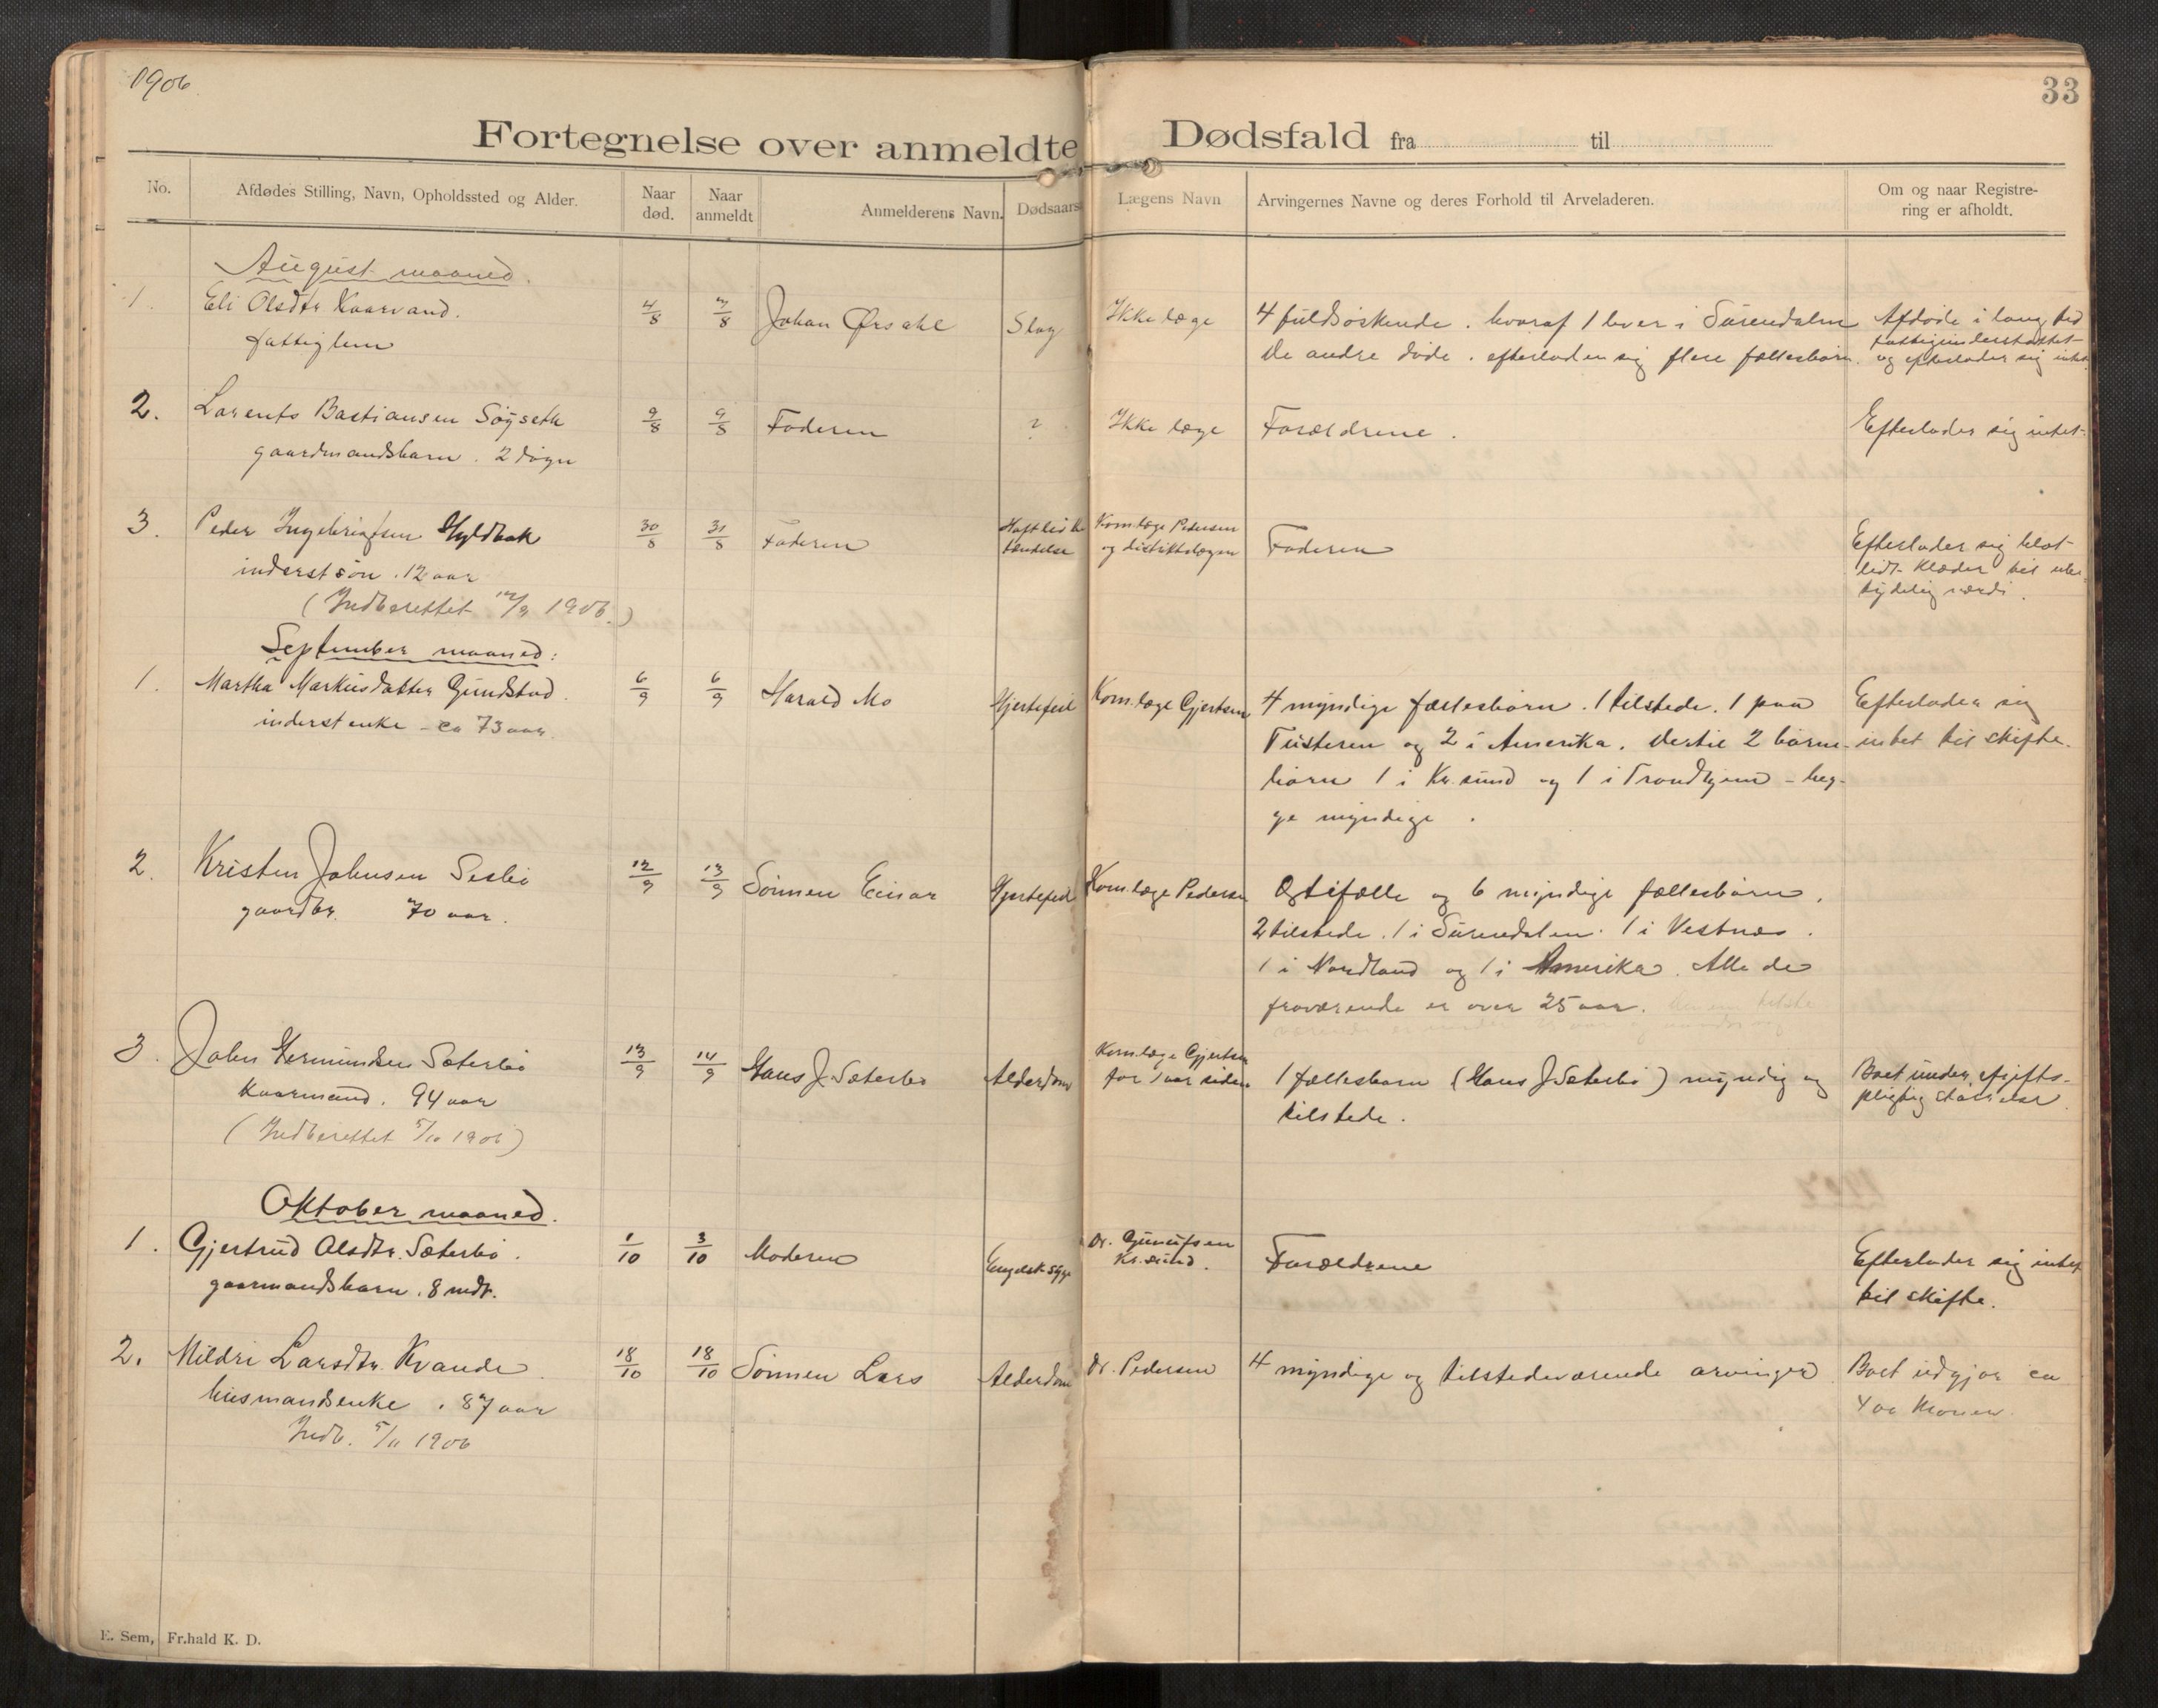 1906
33
Fortegnelse over anmeldte Dødsfald fra til
No.
Afdødes Stilling, Navn, Opholdssted og Alder.
Naar død.
Naar anmeldt
Anmelderens Navn.
Dødsaars
Lægens Navn
Arvingernes Navne og deres Forhold til Arveladeren.
Om og naar Registrering er afholdt.
August maaned.
1. Eli Olsdtr Kaarvand. 4/8 7/8 Johan Slag Ikke læge 4 fuldsøskende. hvoraf 1 lever i Surendalen Afdøde i lang tid
fattiglem De andre døde. efterladen sig flere fællesbørn. fattigunderstøttet og efterlader sig intet
2. Lorents Bastiansen Søyseth 9/8 9/8 Faderen ? Ikke læge Forældrene. Efterlader sig intet.
gaardmandsbarn. 2 døgn
3. Peder Ingebrigtsen Hyldbak 30/8 31/8 Faderen Hofteled be Kom.læge Pedersen Faderen Efterlader sig blot
inderstsøn. 12 aar tændelse og distriktslægen lidt klæder til ube-
(Indberettet 12/9 1906.) tydelig værdi.
September maaned:
1. Martha Markusdatter Gundstad. 6/9 6/9 Harald Mo Hjertefeil Kom.læge Gjertsen 4 myndige fællesbørn. 1 tilstede. 1 paa Efterlader sig
inderstenke - ca 73 aar. Tusteren og 2 i Amerika. Dertil 2 børne- intet til skifte.
børn 1 i Kr.sund og 1 i Trondhjem - beg-
ge myndige.
2. Kristen Johnsen Sesbø 12/9 13/9 Sønnen Einar Hjertefeil Kom.læge Pedersen Ægtefælle og 6 myndige fællesbørn.
gaardbr. 70 aar. 2 tilstede. 1 i Surendalen. 1 i Vestnes.
1 i Nordland og 1 i Amerika. Alle de
fraværende er over 25 aar.
3. John Hermundsen Sæterbø 13/9 14/9 Hans J. Sæterbø Alderdom Kom.læge Gjertsen for 1 aar siden 1 fællesbarn (Hans J Sæterbø) myndig og Boet under afgifts-
Kaarmand. 94 aar tilstede. pligtig størrelse
(Indberettet 5/10 1906)
Oktober maaned.
1. Gjertrud Olsdtr. Sæterbø. 1/10 3/10 Moderen Engelsk syge Dr. Kr.sund. Forældrene Efterlader sig intet
gaarmandsbarn. 8 mdr. til skifte.
2. Mildri Larsdtr. Kvande. 18/10 18/10 Sønnen Lars Alderdom Dr. Pedersen 4 myndige og tilstedeværende arvinger Boet udgjør ca
husmandsenke. 87 aar 400 Kroner.
Indb. 5/11 1906
E. Sem, Fr.hald K. D.